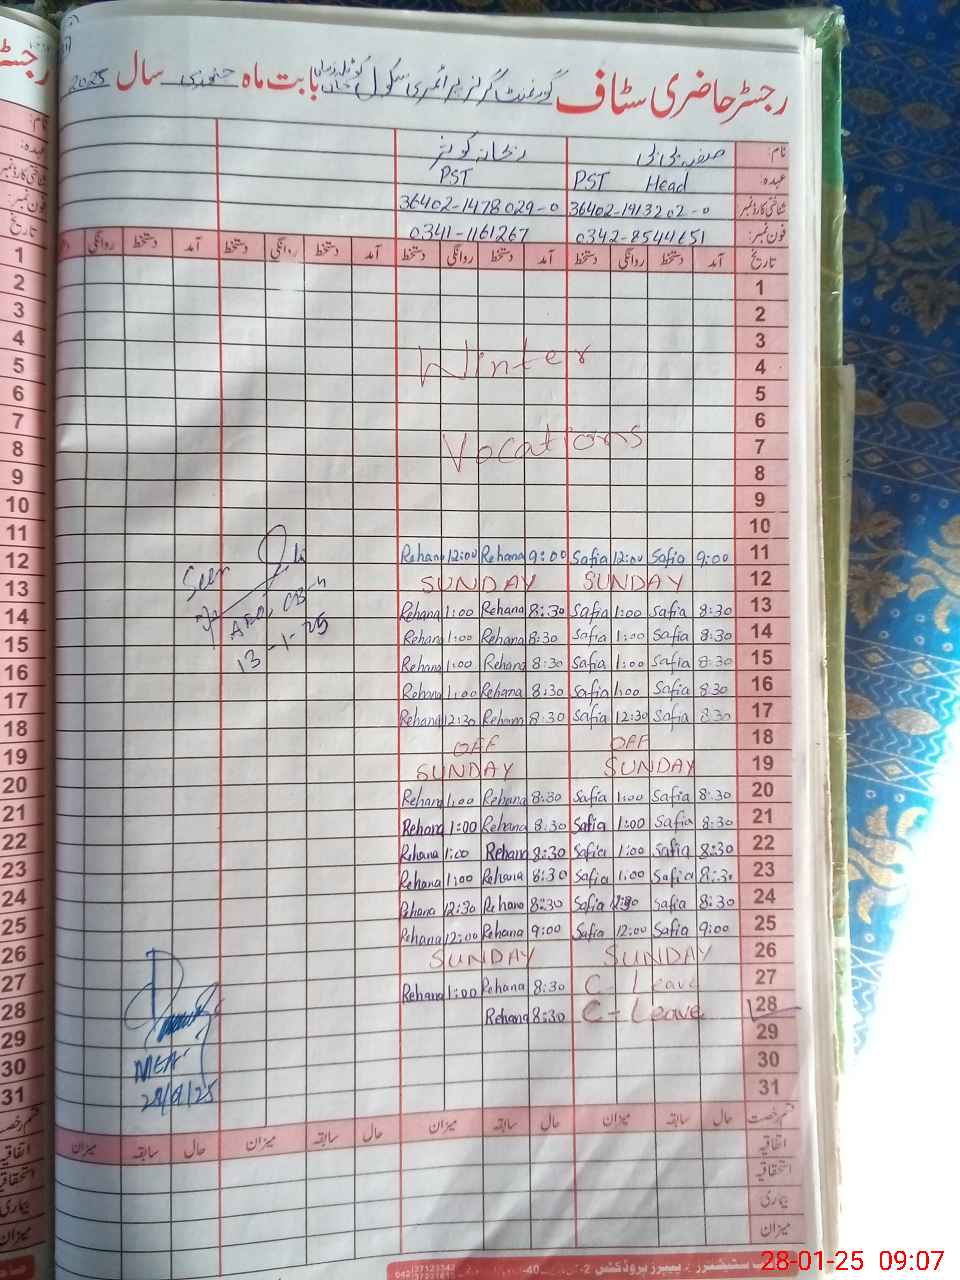 رجسٹر حاضری سٹاف گورنمنٹ گرلز پرائمری سکول بابت ماہ جنوری سال 2025
نام: صفیہ بی بی ریحانہ کوثر
عہدہ: PST Head PST
شناختی کارڈ نمبر 36402-1913202-0 36402-1478029-0
فون نمبر: 0342-8544651 0341-1161267
تاریخ آمد دستخط روانگی دستخط آمد دستخط روانگی دستخط آمد دستخط روانگی دستخط آمد دستخط روانگی
1
2
3
Winter
4
5
6
Vocations
7
8
9
10
Rehana 12:00 Rehana 9:00 Safia 12:00 Safia 9:00 11
SUNDAY SUNDAY 12
Rehana 1:00 Rehana 8:30 Safia 1:00 Safia 8:30 13
Rehana 1:00 Rehana 8:30 Safia 1:00 Safia 8:30 14
Rehana 1:00 Rehana 8:30 Safia 1:00 Safia 8:30 15
Rehana 1:00 Rehana 8:30 Safia 1:00 Safia 8:30 16
Rehana 12:30 Rehana 8:30 Safia 12:30 Safia 8:30 17
OFF OFF 18
SUNDAY SUNDAY 19
Rehana 1:00 Rehana 8:30 Safia 1:00 Safia 8:30 20
Rehana 1:00 Rehana 8:30 Safia 1:00 Safia 8:30 21
Rehana 1:00 Rehana 8:30 Safia 1:00 Safia 8:30 22
Rehana 1:00 Rehana 8:30 Safia 1:00 Safia 8:30 23
Rehana 12:30 Rehana 8:30 Safia 8:30 24
Rehana 12:00 Rehana 9:00 Safia 12:00 Safia 9:00 25
SUNDAY SUNDAY 26
Rehana 1:00 Rehana 8:30 C- Leave 27
Rehana 8:30 C- Leave 28
29
30
31
Seen
AEO, CB-4
13-1-25
MEA
28/1/25
قسم رخصت حال سابقہ میزان حال سابقہ میزان حال سابقہ میزان
اتفاقیہ
استحقاقیہ
بیماری
میزان
1
2
3
4
5
6
7
8
9
10
11
12
13
14
15
16
17
18
19
20
21
22
23
24
25
26
27
28
29
30
31
28-01-25 09:07